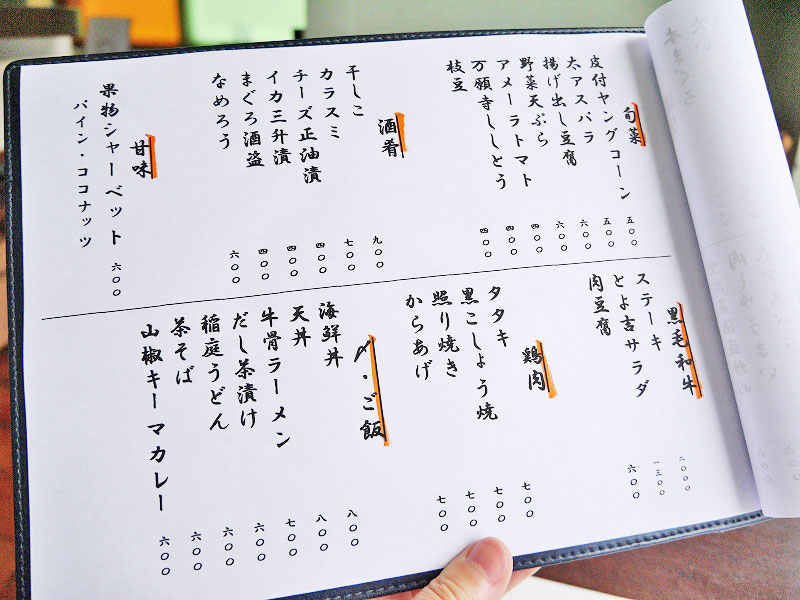 旬菜
皮付ヤングコーン 五〇〇
太アスパラ 五〇〇
揚げ出し豆腐 六〇〇
野菜天ぷら 六〇〇
アメーラトマト 四〇〇
万願寺ししとう 四〇〇
枝豆 四〇〇
酒肴
干しこ 九〇〇
カラスミ 七〇〇
チーズ正油漬 四〇〇
イカ三升漬 四〇〇
まぐろ酒盗 四〇〇
なめろう 六〇〇
甘味
果物シャーベット 六〇〇
パイン・ココナッツ
黒毛和牛
ステーキ 二〇〇〇
とよ吉サラダ 一三〇〇
肉豆腐 六〇〇
鶏肉
タタキ 七〇〇
黒こしょう焼 七〇〇
照り焼き 七〇〇
からあげ 七〇〇
〆・ご飯
海鮮丼 八〇〇
天丼 八〇〇
牛骨ラーメン 七〇〇
だし茶漬け 六〇〇
稲庭うどん 六〇〇
茶そば 六〇〇
山椒キーマカレー 六〇〇